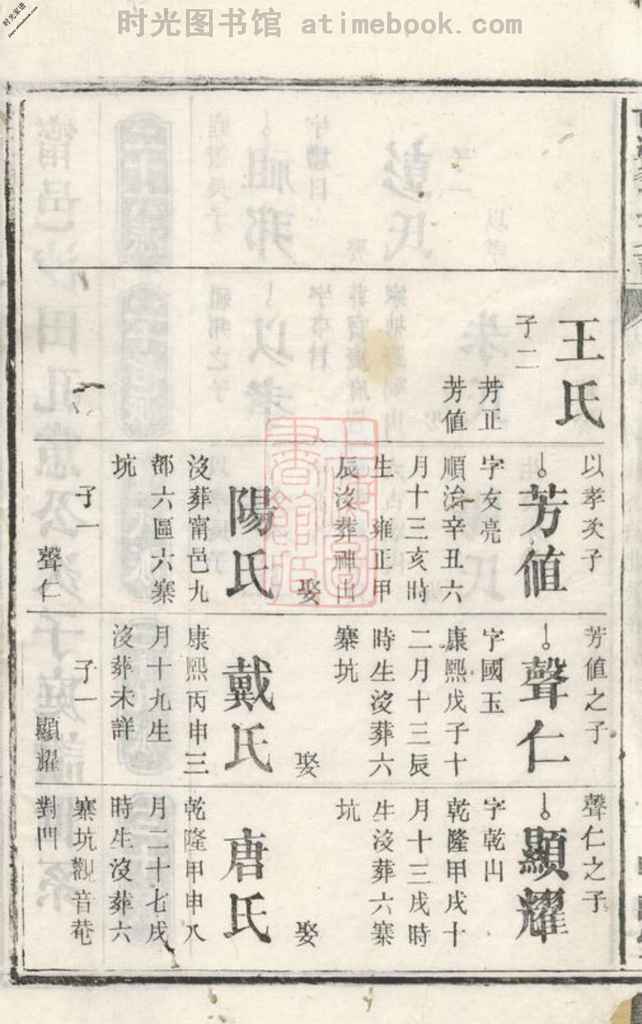 时光图书馆 atimebook.com
王氏
子二
芳正
芳值
以孝次子
芳值
字友亮
順治辛丑六
月十三亥時
生 雍正甲
辰沒葬神山
娶
陽氏
沒葬甯邑九
都六區六寨
坑
子一
聲仁
芳值之子
聲仁
字國玉
康熙戊子十
二月十三辰
時生沒葬六
寨坑
娶
戴氏
康熙丙申三
月十九生
沒葬未詳
子一
顯耀
聲仁之子
顯耀
字乾山
乾隆甲戌十
月十三戌時
生沒葬六寨
坑
娶
唐氏
乾隆甲申八
月二十七戌
時生沒葬六
寨坑觀音菴
對門